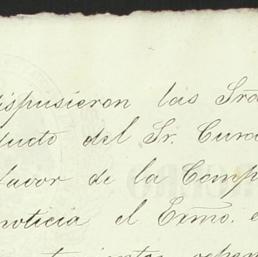 dispusieron las Sra
ducto del Sr. Cura
favor de la Comp
noticia el Exmo. e